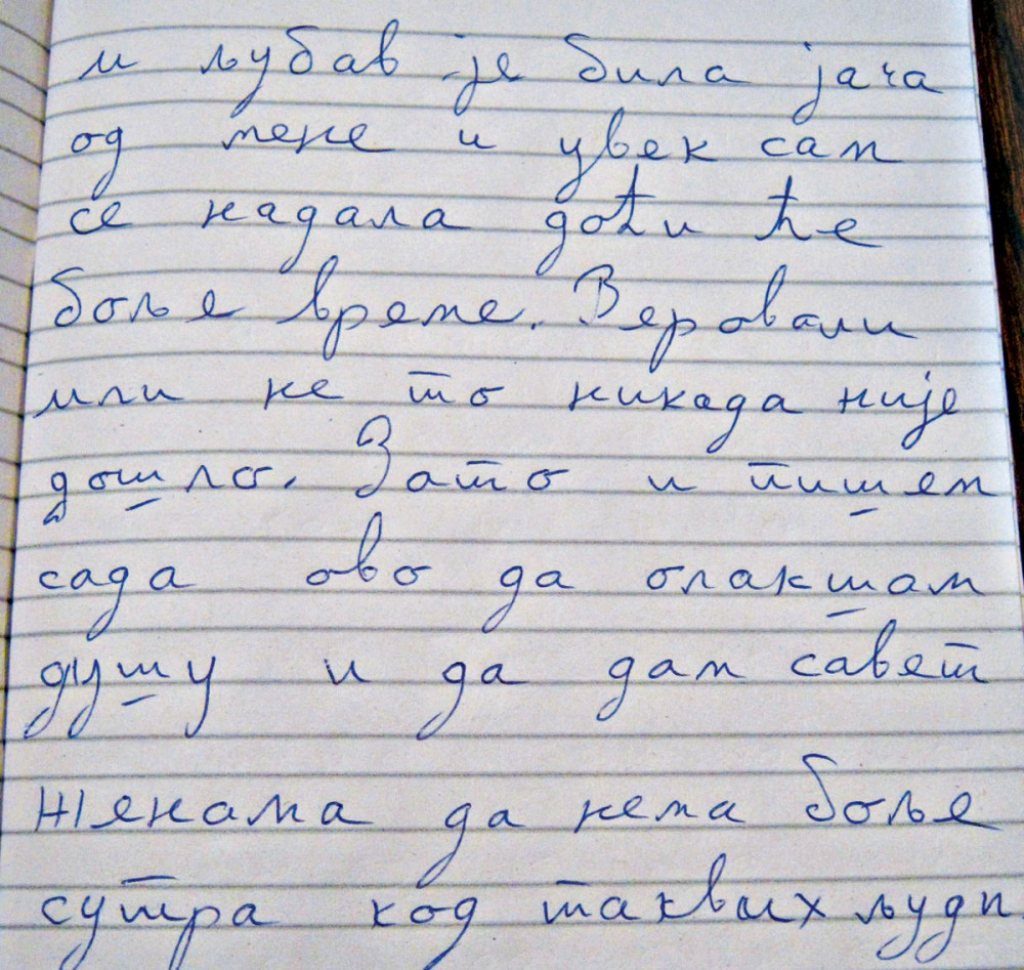 и љубав је била јача
од мене и увек сам
се надала доћи ће
боље време. Веровали
или не то никада није
дошло. Зато и пишем
сада ово да олакшам
душу и да дам савет
женама да нема боље
сутра код таквих људи